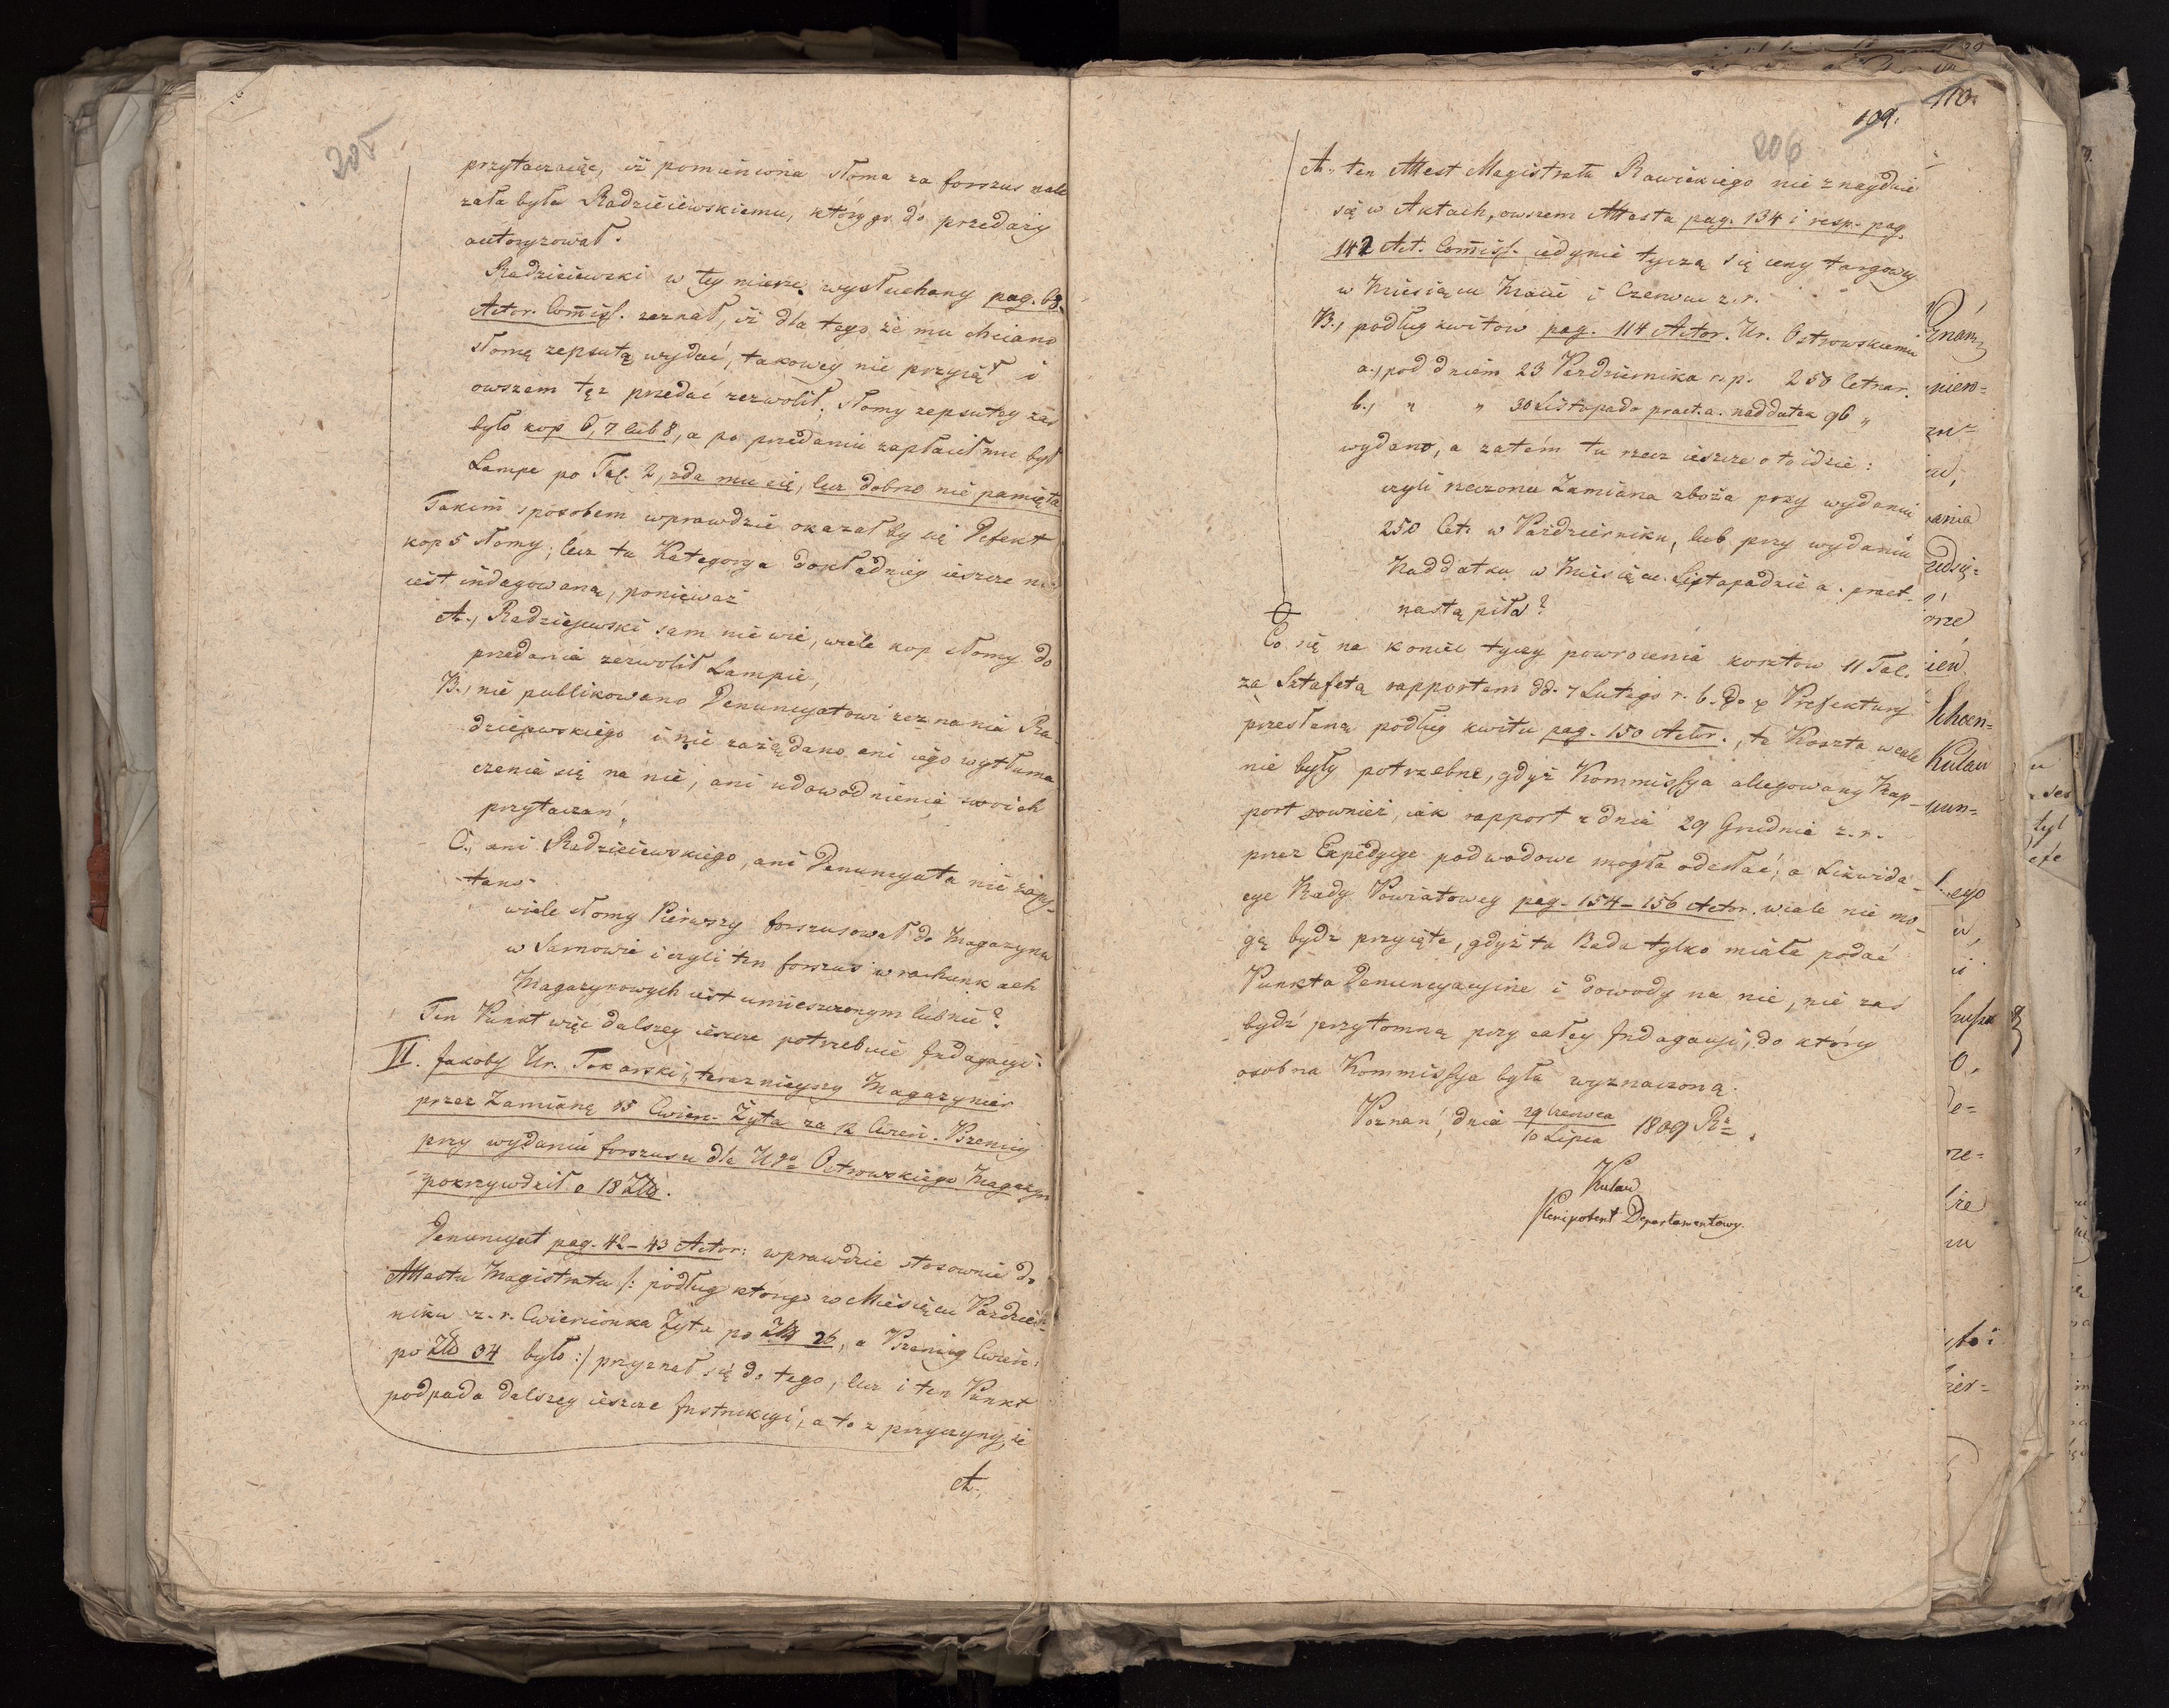 205
przytaczaiąc, iż pomieniona słoma za forszus nale
żała była Radzieiewskiemu, który go do przedaży
autoryzował.
Radzieiewski w tey mierze wysłuchany pag. 68.
Actor. Comiss. zeznał, iż dla tego że mu chciano
słomę zepsutą wydać, takowey nie przyiął i
owszem też przedać zezwolił. Słomy zepsutey zaś
było kop 6, 7 lub 8, a po przedaniu zapłacił mu był
Lampe po Tal. 2, zda mu się, lecz dobrze nie pamięta
Takim sposobem wprawdzie okazał by się Defekt
kop 5 słomy; lecz ta Kategorya dokładniey ieszcze nie
iest indagowaną, ponieważ
A., Radziejewski sam nie wie, wiele kop słomy do
przedania zezwolił Lampie,
B., nie publikowano Denuncyatowi zeznania Ra-
dziejewskiego i nie zażądano ani iego wytłuma
czenia się na nie, ani udowodnienia swoich
przytaczań,
C., ani Radzieiewskiego, ani Denuncyata nie zapy-
tano
wiele słomy Pierwszy forszusował do Magazynu
w Sarnowie i czyli ten forszus w rachunkach
Magazynowych iest umieszczonym lub nie?
Ten Punkt więc dalszey ieszcze potrzebuie Indagacyi.
II. Jakoby Ur. Tokarski, teraznieyszy Magazynier
przez Zamianę 15 Cwierc. Żyta za 12 Cwierć. Pszenicy
przy wydaniu forszusu dla Ugo Ostrowskiego Magazyn
pokrzywdził o 18 Złł.
Denuncyat pag. 42-43 Actor: wprawdzie stosownie do
Attestu Magistratu /: podług którego w Miesiącu Paździer-
niku z. r. Cwiercionka Żyta po Złł 26, a Pszenicy Cwierć:
po Złł 34 było :/ przyznał się do tego, lecz i ten Punkt
podpada dalszey ieszcze Instrukcyi, a to z przyczyny, że
A.,
109.
206
110.
A., ten Attest Magistratu Rawickiego nie znayduie
się w Aktach, owszem Attesta pag. 134 i resp. pag.
142 Act. Comiss. iedynie tyczą się ceny targowey
w Miesiącu Maiu i Czerwcu z. r.
B., podług kwitów pag. 114 Actor. Ur. Ostrowskiemu
a., pod dniem 23 Października r. p. 250 Cetnar.
b., " " 30 Listopada praet. a. naddatku 96 "
wydano, a zatém tu rzecz ieszcze o to idzie:
czyli rzeczona Zamiana zboża przy wydaniu
250 Cet. w Październiku, lub przy wydaniu
Naddatku w Miesiącu Listopadzie a. praet.
nastąpiła?
Co się na koniec tyczy powrocenia kosztow 11 Tal.
za Sztafetą rapportem dd. 7 Lutego r. b. do Prefektury
przesłaną podług kwitu pag. 150 Actor., te Koszta wcale
nie były potrzebne, gdyż Kommissya allegowany Rap-
port rownież, iak rapport z dnia 29 Grudnia z. r.
przez Expedycyę podwodowe mogła odesłać; a Likwida-
cye Rady Powiatowey pag. 154-156 Actor. wcale nie mo-
gą bydź przyięte, gdyż ta Rada tylko miała podać
Punkta Denuncyacyine i dowody na nie, nie zaś
bydź przytomną przy całey Indagacyi, do którey
osobna Kommissya była wyznaczoną.
Poznań, dnia 29 Czerwca / 10 Lipca 1809 Rz.
Kulau
Plenipotent Departamentowy.